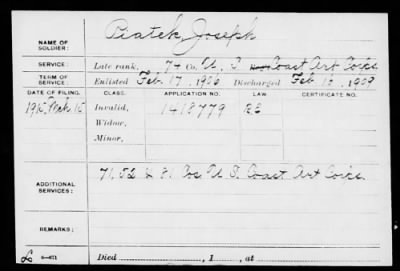 NAME OF SOLDIER: Piatek, Joseph
SERVICE: Late rank, 74 Co. U. S. Coast Art Corps
TERM OF SERVICE: Enlisted Feb. 17, 1906 Discharged Feb 16, 1909
DATE OF FILING. CLASS. APPLICATION NO. LAW. CERTIFICATE NO.
Feb 15 Invalid, 1418779
Widow,
Minor,
ADDITIONAL SERVICES: 71, 52 & 81 Cos U S Coast Art Corps
REMARKS:
6—471 Died , 1 , at